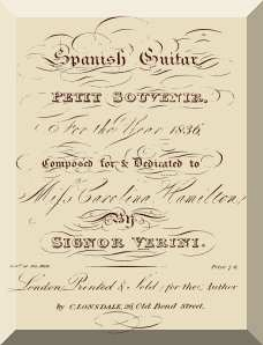 Spanish Guitar
PETIT SOUVENIR,
For the Year 1836,
Composed for & Dedicated to
Miss Carolina Hamilton,
By
SIGNOR VERINI.
Price
London, Printed & Sold, for the Author
by C. LONSDALE, 26, Old Bond Street.